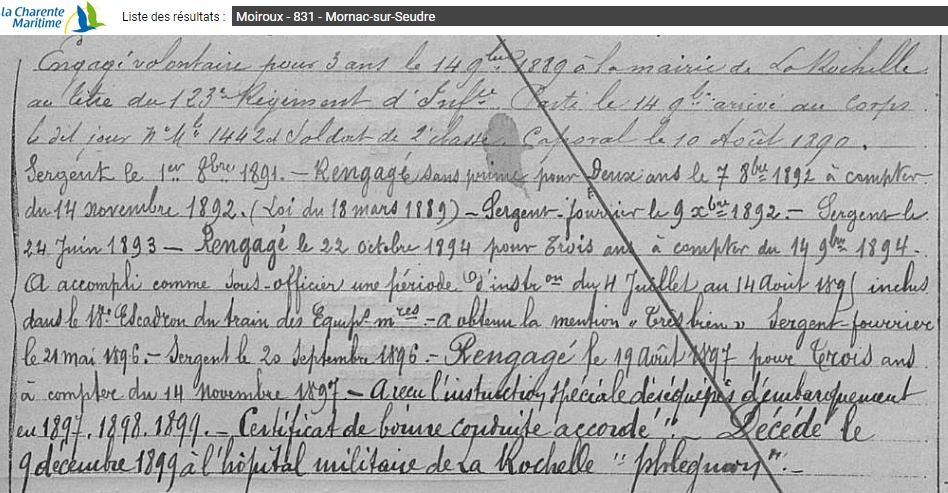 la Charente
Maritime
Liste des résultats : Moiroux - 831 - Mornac-sur-Seudre
Engagé volontaire pour 3 ans le 14 9bre 1889 à la mairie de La Rochelle
au titre du 123e Régiment d'Infie Parti le 14 9bre arrivé au corps
le dit jour No Mle 1442 Soldat de 2e classe. Caporal le 10 Août 1890.
Sergent le 1er 8bre 1891. — Rengagé sans prime pour Deux ans le 7 8bre 1892 à compter
du 14 novembre 1892. (Loi du 18 mars 1889) — Sergent-fourrier le 9 xbre 1892. — Sergent le
24 Juin 1893 — Rengagé le 22 octobre 1894 pour Trois ans à compter du 14 9bre 1894.
A accompli comme sous-officier une période d'instron du 4 Juillet au 14 Août 1895 inclus
dans le 18e Escadron du train des Equipes mres — a obtenu la mention « Très bien » Sergent-fourrier
le 21 mai 1896. — Sergent le 20 Septembre 1896. — Rengagé le 19 Août 1897 pour Trois ans
à compter du 14 Novembre 1897 — A reçu l'instruction spéciale des équipes d'embarquement
en 1897. 1898. 1899. — Certificat de bonne conduite accordé " — Décédé le
9 décembre 1899 à l'hôpital militaire de La Rochelle " phlegmon ". —